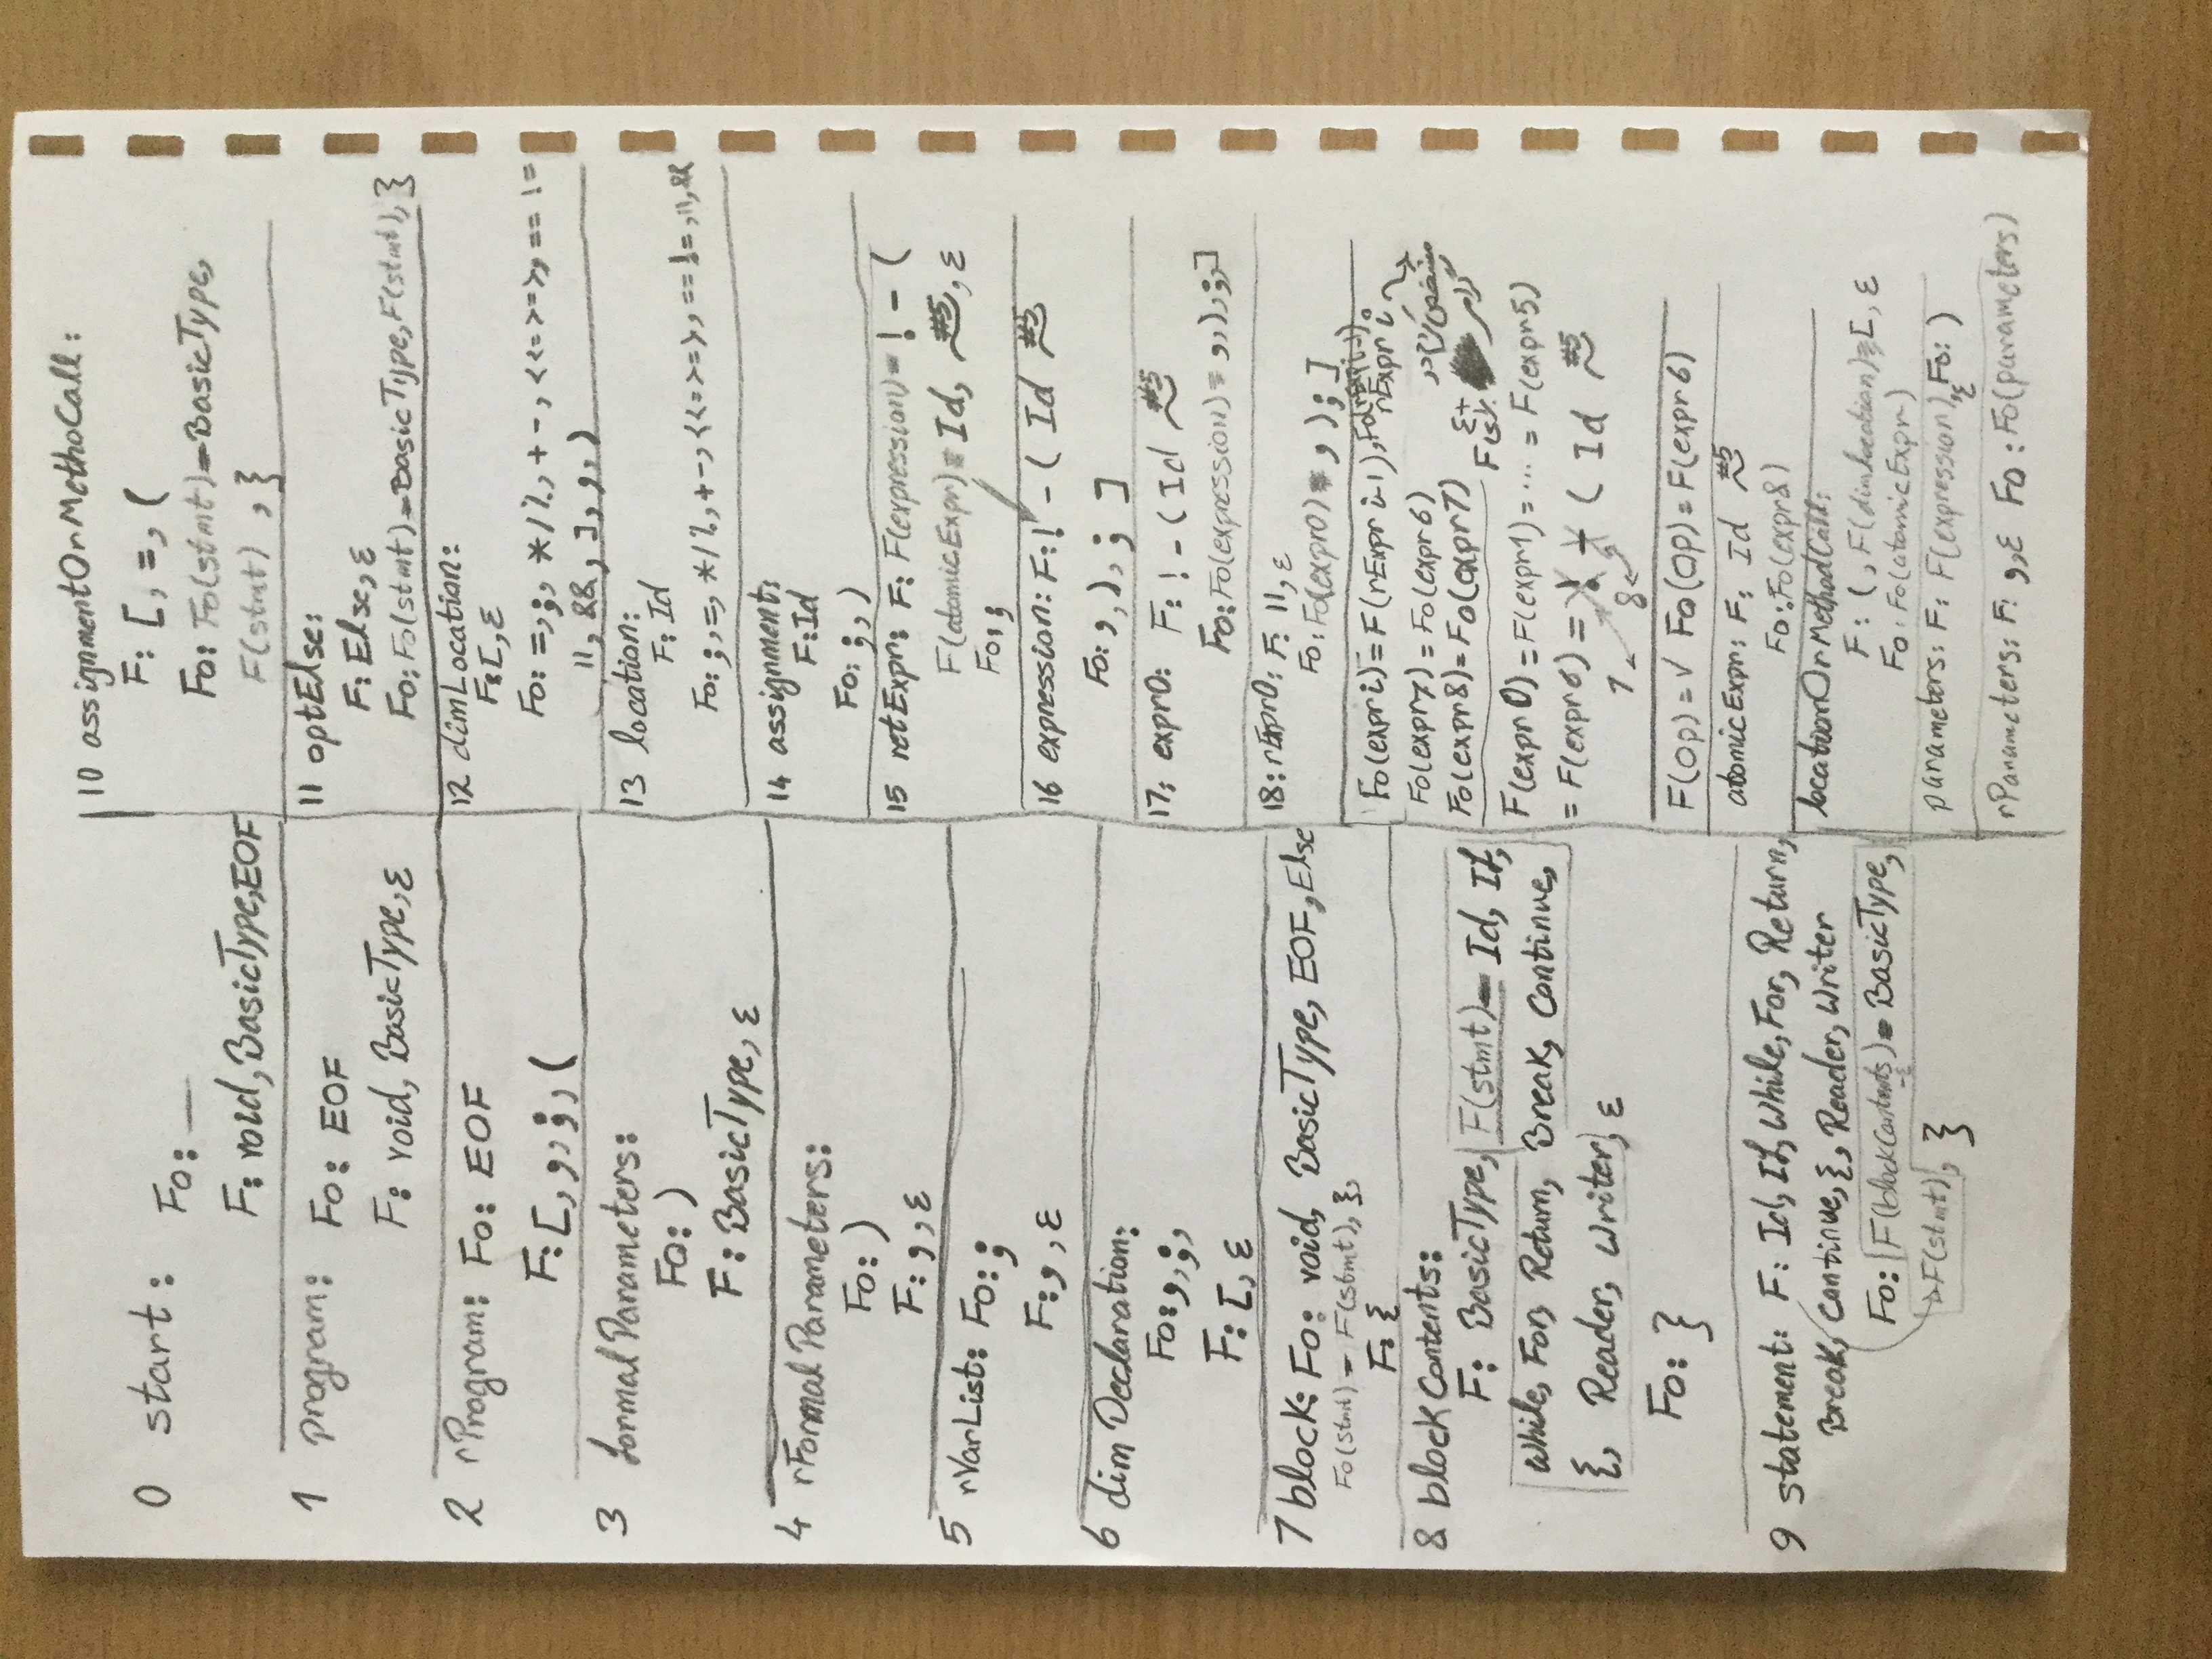 0 start: Fo: —
F: void, BasicType, EOF
1 program: Fo: EOF
F: void, BasicType, ε
2 rProgram: Fo: EOF
F: [, ,, ;, (
3 formalParameters:
Fo: )
F: BasicType, ε
4 rFormalParameters:
Fo: )
F: ,, ε
5 rVarList: Fo: ;
F: ,, ε
6 dimDeclaration:
Fo: ,, ;,
F: [, ε
7 block: Fo: void, BasicType, EOF, Else
Fo(stmt) - F(stmt), },
F: {
8 blockContents:
F: BasicType, F(stmt) = Id, If,
While, For, Return, Break, Continue,
{, Reader, Writer, ε
Fo: }
9 statement: F: Id, If, While, For, Return,
Break, Continue, {, Reader, Writer
Fo: F(blockContents) = BasicType,
-ε
F(stmt), }
10 assignmentOrMethoCall:
F: [, =, (
Fo: Fo(stmt) = BasicType,
F(stmt), }
11 optElse:
F: Else, ε
Fo: Fo(stmt) = BasicType, F(stmt), }
12 dimLocation:
F: [, ε
Fo: =, ;, */%, + -, < <= > >=, == !=
||, &&, ], ,, )
13 location:
F: Id
Fo: ;, =, */%, + -, < <= > >=, == !=, ||, &&
14 assignment:
F: Id
Fo: ;, )
15 retExpr: F: F(expression) = ! - (
F(atomicExpr) = Id, #5, ε
Fo: ;
16 expression: F: ! - ( Id #5
Fo: ,, ), ; ]
17: expr0: F: ! - ( Id #5
Fo: Fo(expression) = ,, ), ;, ]
18: rExpr0: F: ||, ε
Fo: Fo(expr0) = , ) ; ]
Fo(expr i) = F(rExpr i-1), Fo(expr i-1):
rExpr i
Fo(expr7) = Fo(expr6)
Fo(expr8) = Fo(expr7)
F(expr0) = F(expr1) = ... = F(expr5)
= F(expr6) = ( Id #5
7 8
F(op) = √ Fo(op) = F(expr6)
atomicExpr: F: Id #5
Fo: Fo(expr8)
locationOrMethodCall:
F: (, F(dimLocation) = [, ε
Fo: Fo(atomicExpr)
parameters: F: F(expression), ε Fo: )
rParameters: F: ,, ε Fo: Fo(parameters)